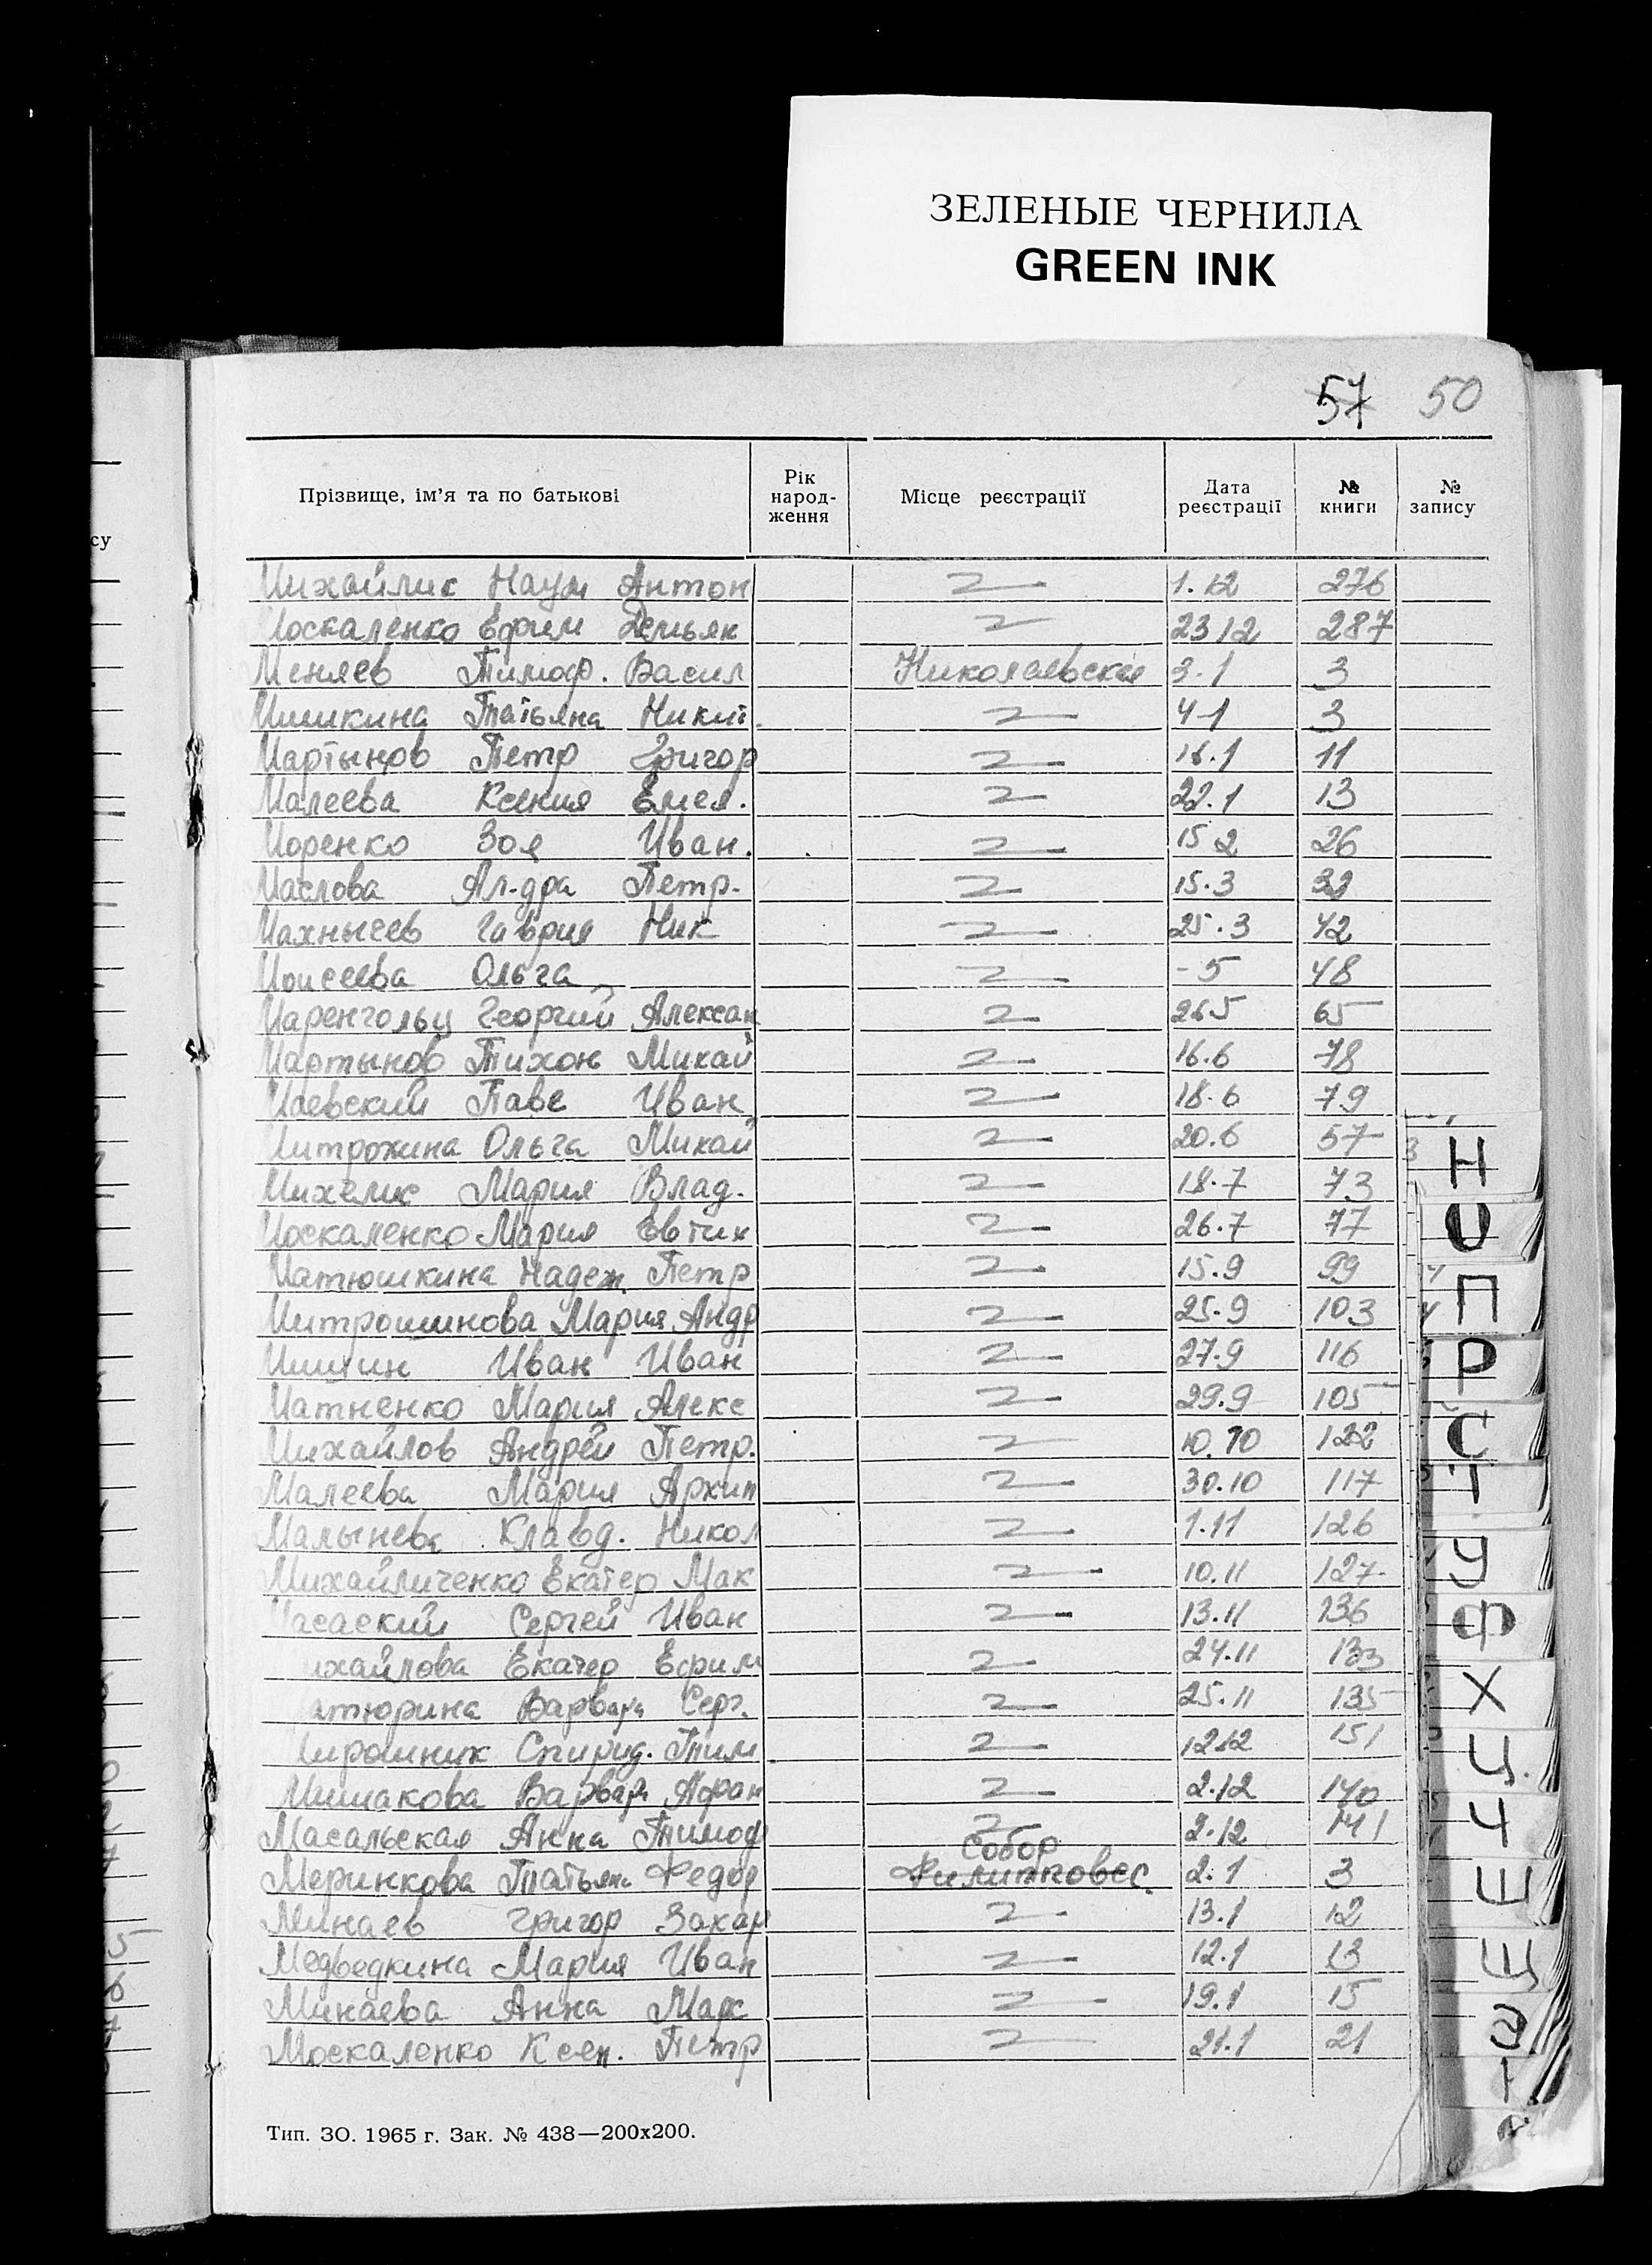 ЗЕЛЕНЫЕ ЧЕРНИЛА
GREEN INK
57 50
Прізвище, ім’я та по батькові Рік народ-ження Місце реєстрації Дата реєстрації № книги № запису
Михайлик Наум Антон 1.12 276
Москаленко Ефим Демьян 23 12 287
Меняев Тимоф. Васил Николаевская 3.1 3
Мишкина Татьяна Никит. 4-1 3
Мартынов Петр Григор 16.1 11
Малеева Ксения Емел. 22.1 13
Моренко Зоя Иван. 15 2 26
Маслова Ал-дра Петр. 15.3 32
Махнычев Гаврил Ник 25.3 42
Моисеева Ольга - 5 48
Маренгольц Георгий Алексан 26.5 65
Мартынов Тихон Михай 16.6 78
Маевский Паве Иван 18.6 79
Митрохина Ольга Михай 20.6 57
Михелис Мария Влад. 18.7 73
Москаленко Мария Евтих 26.7 77
Матюшкина Надеж. Петр 15.9 99
Митрошинова Мария Андр 25.9 103
Мишин Иван Иван 27.9 116
Матненко Мария Алекс 29.9 105
Михайлов Андрей Петр. 10.10 122
Малеева Мария Архип 30.10 117
Малынева Клавд. Никол 1.11 126
Михайличенко Екатер Мак 10.11 127
Сергей Иван 13.11 136
ихайлова Екатер Ефим 24.11 133
атюрина Варвара Серг. 25.11 135
Мирошник Спирид. Тим. 12.12 151
Мишакова Варвара Афан 2.12 140
Масальская Анна Тимоф 2.12 141
Собор
Меринкова Татьяна Федор Филипповес. 2.1 3
Минаев Григор Захар 13.1 12
Медведкина Мария Иван 12.1 13
Минаева Анна Марк 19.1 15
Москаленко Ксен. Петр 21.1 21
Тип. ЗО. 1965 г. Зак. № 438—200х200.
су
Н
О
П
Р
С
Т
У
Ф
Х
Ц
Ч
Ш
Щ
Э